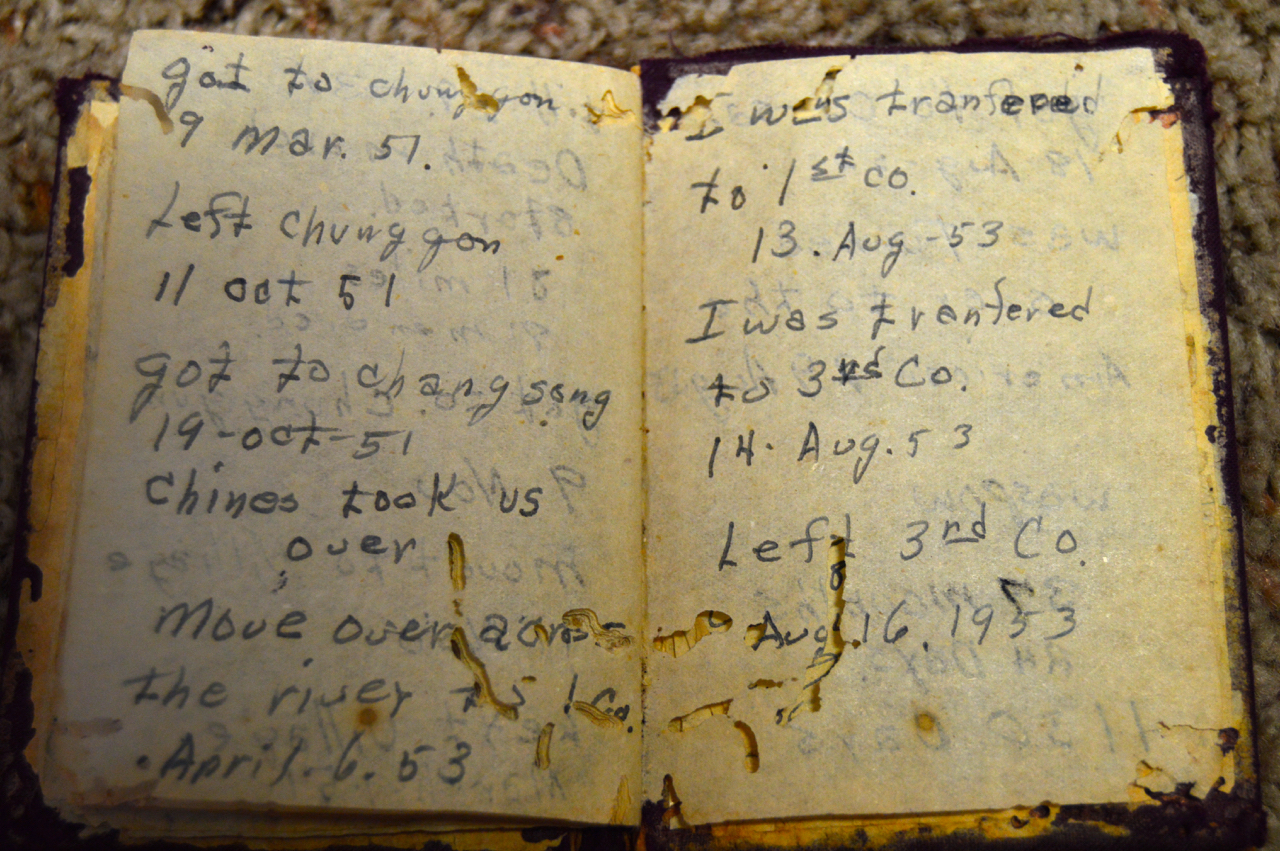 got to chunggon
9 mar. 51.
Left chunggon
11 oct 51
got to changsong
19-oct-51
Chines took us
over
move over acros
the river to 1 Co.
April. 6. 53
I was tranfered
to 1st co.
13. Aug-53
I was tranfered
to 3rd Co.
14. Aug. 53
Left 3rd Co.
Aug. 16. 1953